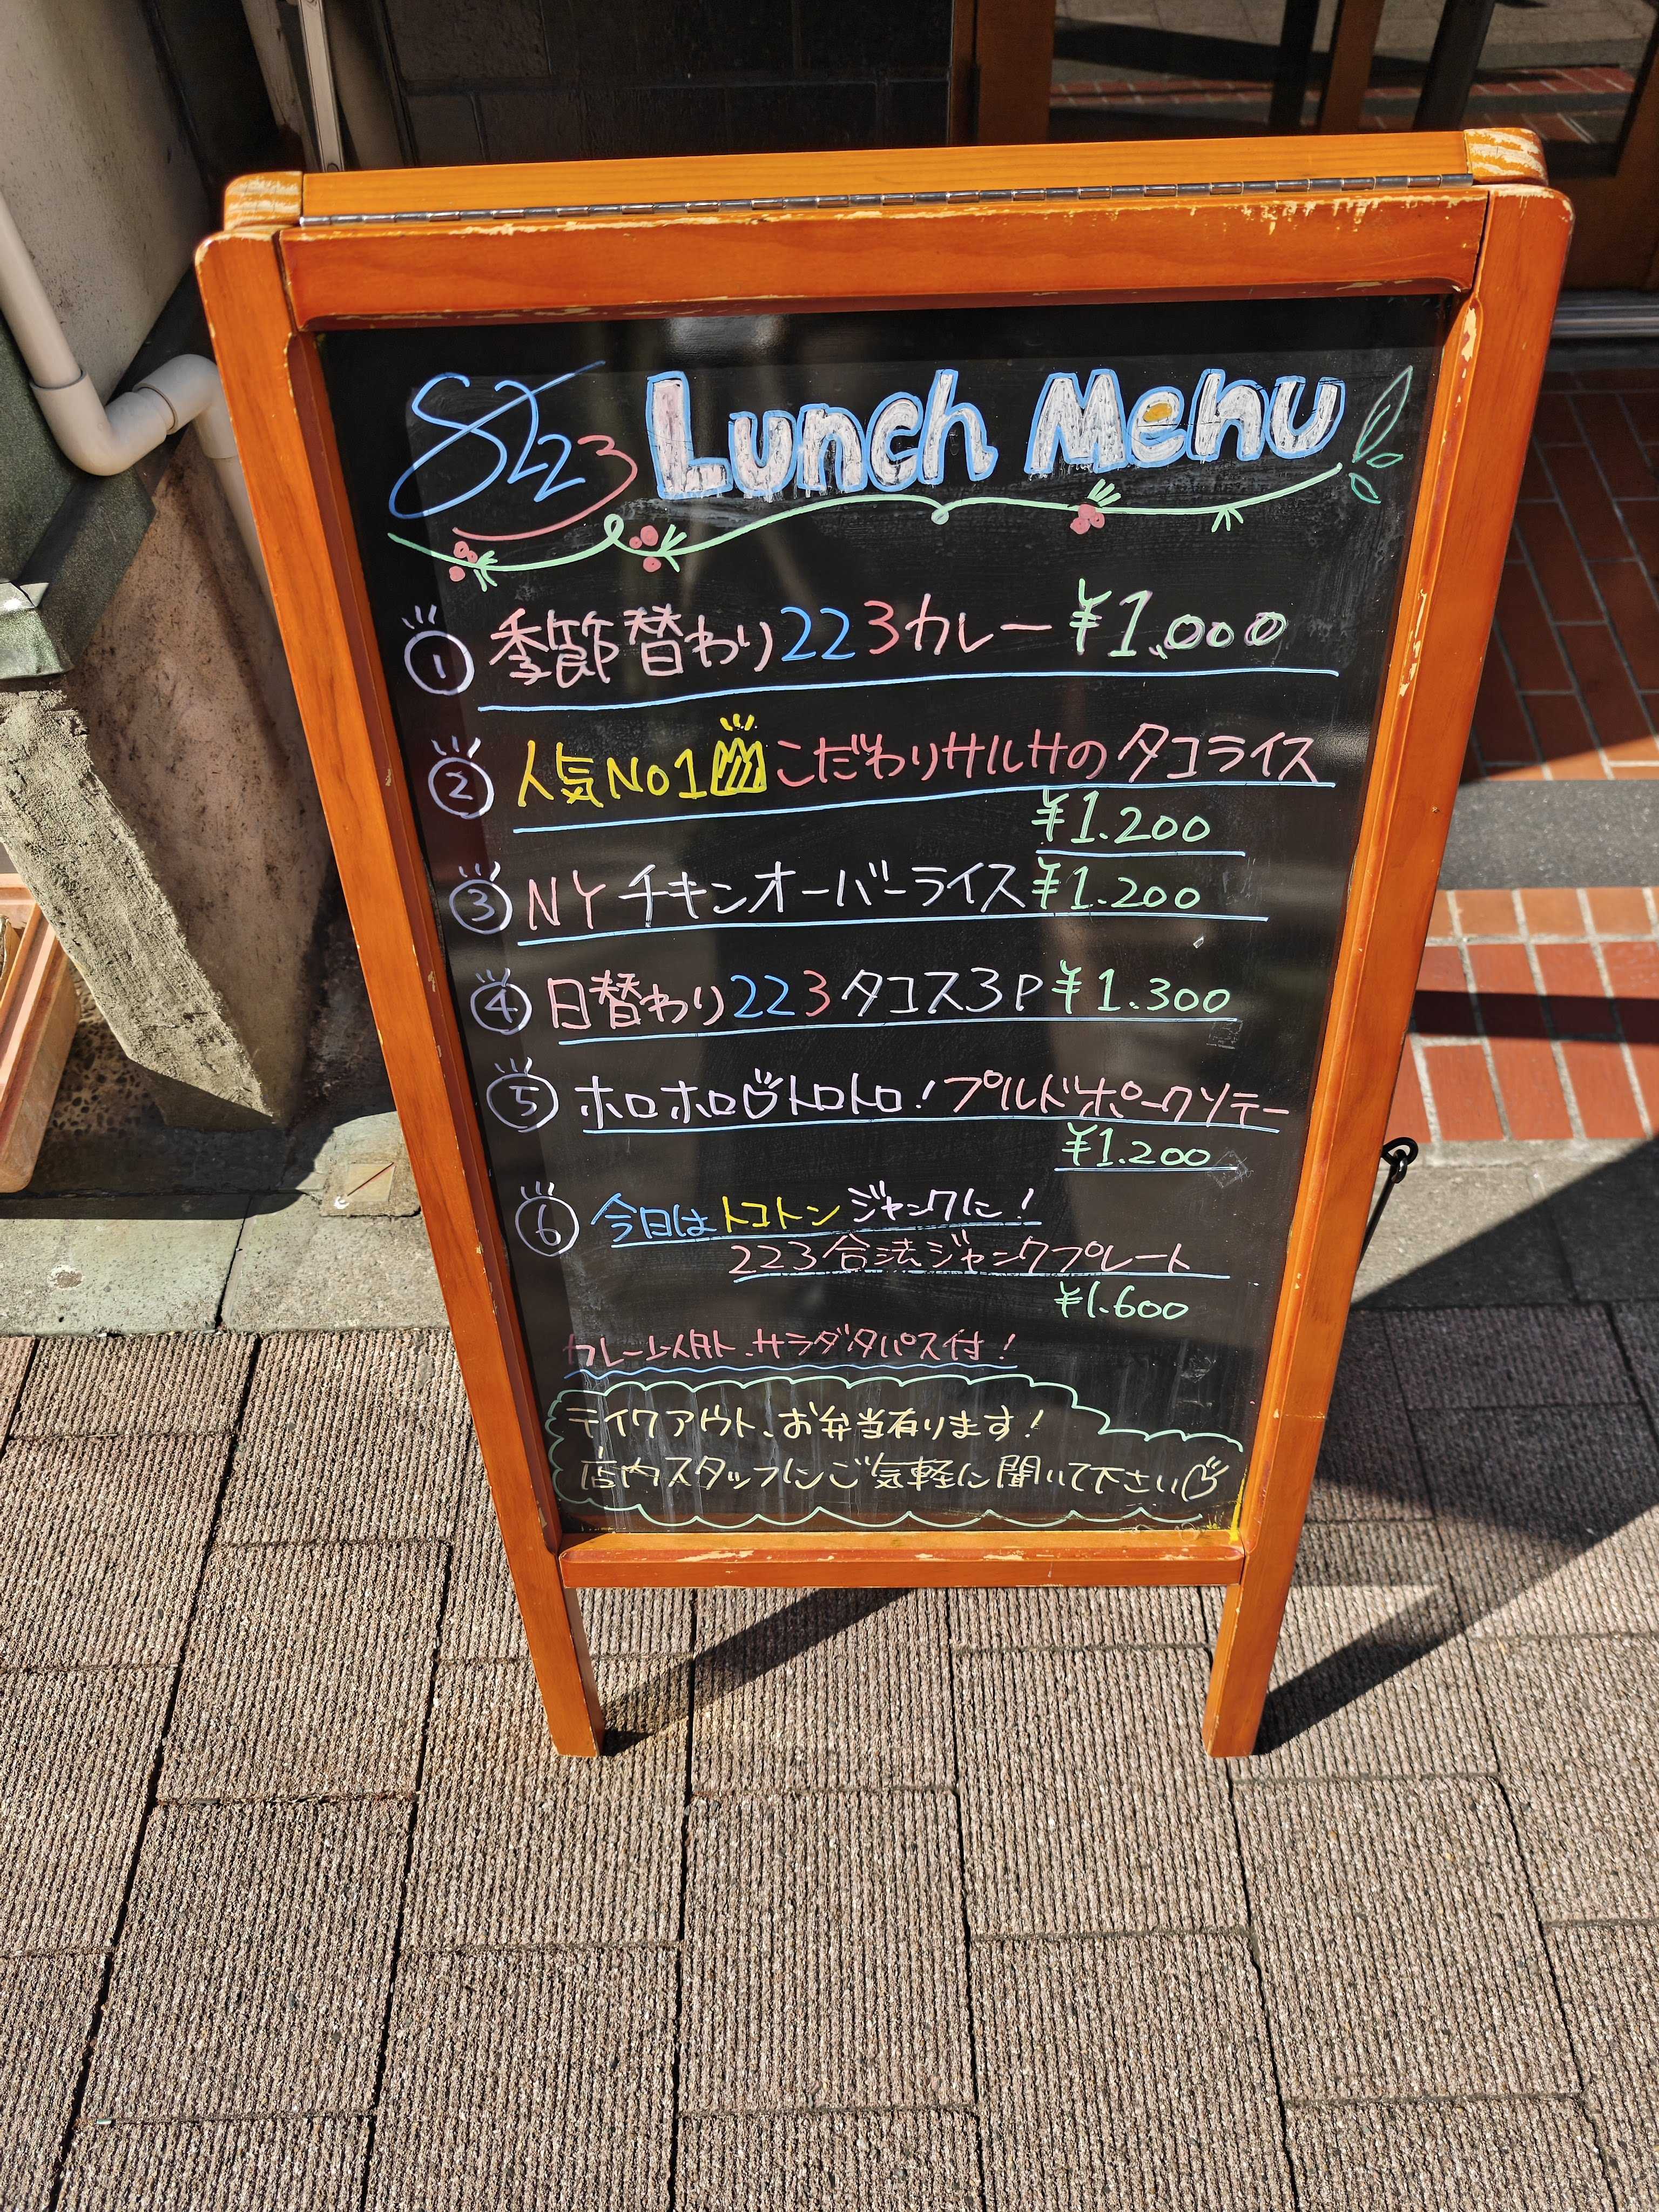 223 Lunch Menu
① 季節替わり223カレー ¥1,000
② 人気No1 こだわりサルサのタコライス
¥1.200
③ NY チキンオーバーライス ¥1.200
④ 日替わり223タコス3P ¥1.300
⑤ ホロホロトロトロ!プルドポークソテー
¥1.200
⑥ 今日はトコトンジャンクに!
223合法ジャンクプレート
¥1.600
カレー以外、サラダタパス付!
テイクアウト、お弁当有ります!
店内スタッフにご気軽に聞いて下さい